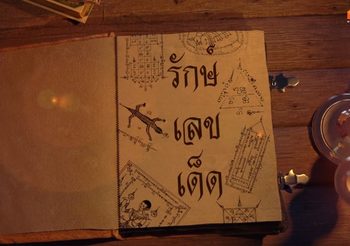 รักษ์
เลข
เด็ด